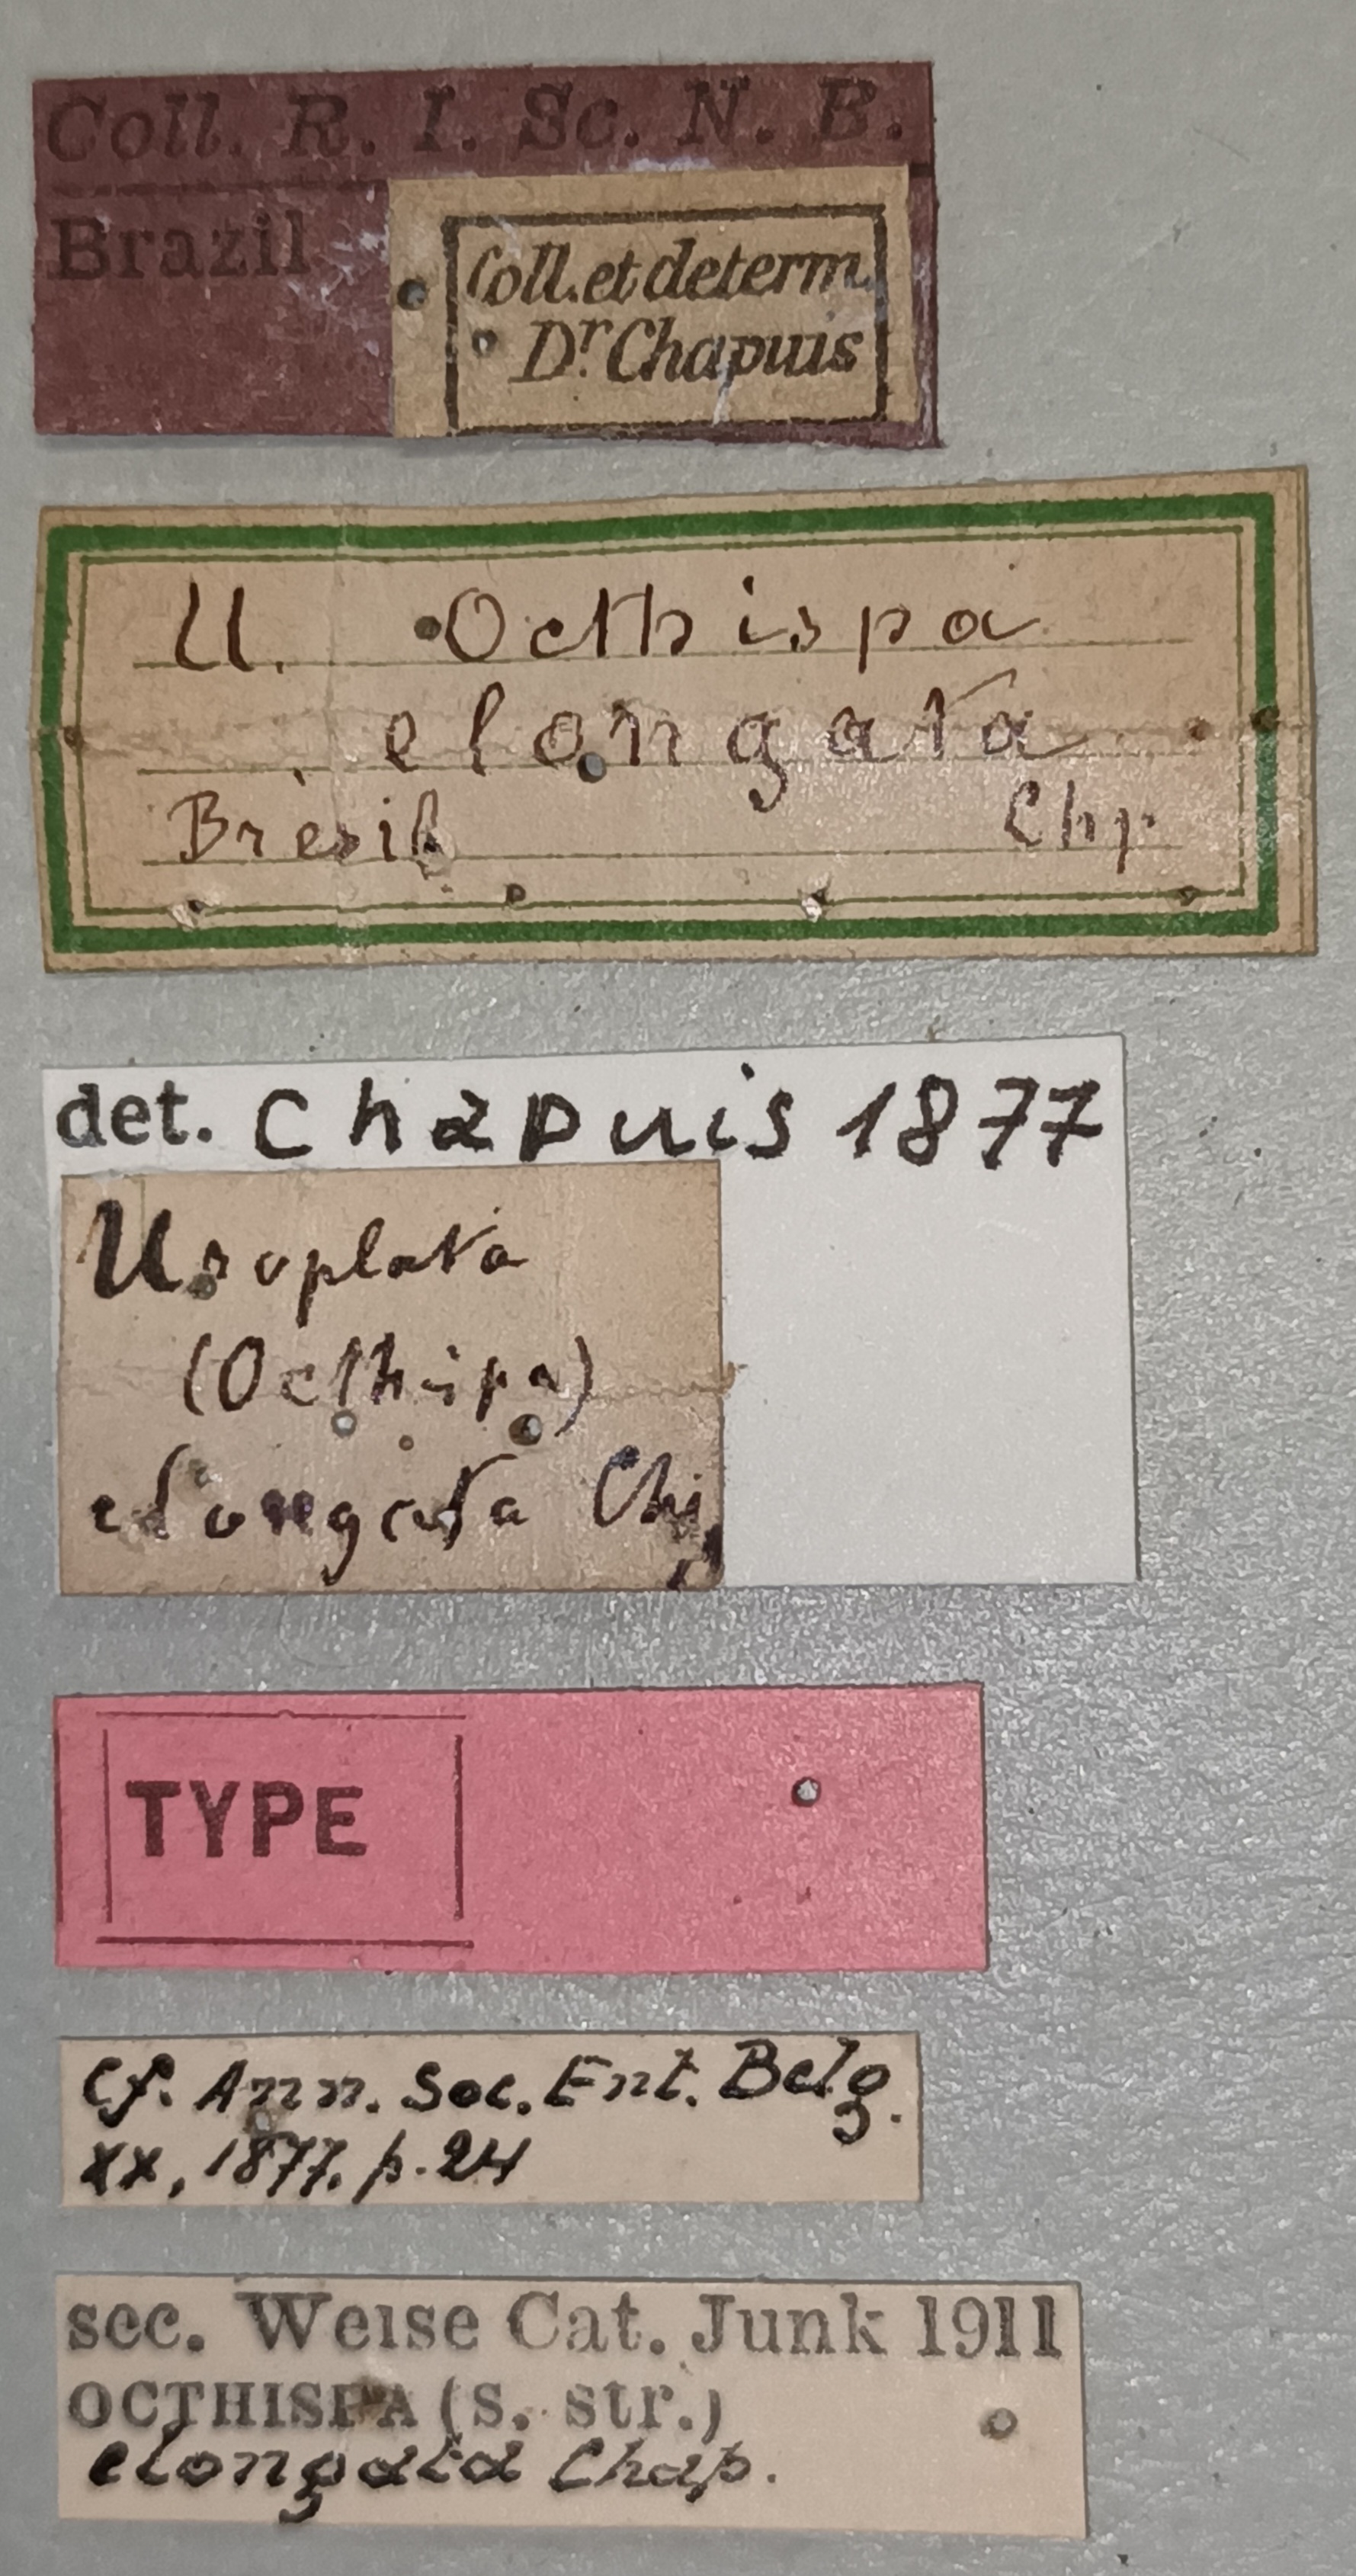 Coll. R. I. Sc. N. B.
Brazil
Coll. et determ.
Dr. Chapuis
U. Octhispa
elongata
Brèsil Chp.
det. Chapuis 1877
Uroplata
(Octhispa)
elongata Chp
TYPE
Cf. Ann. Soc. Ent. Belg.
XX, 1877. p. 24
sec. Weise Cat. Junk 1911
OCTHISPA (S. str.)
elongata Chap.